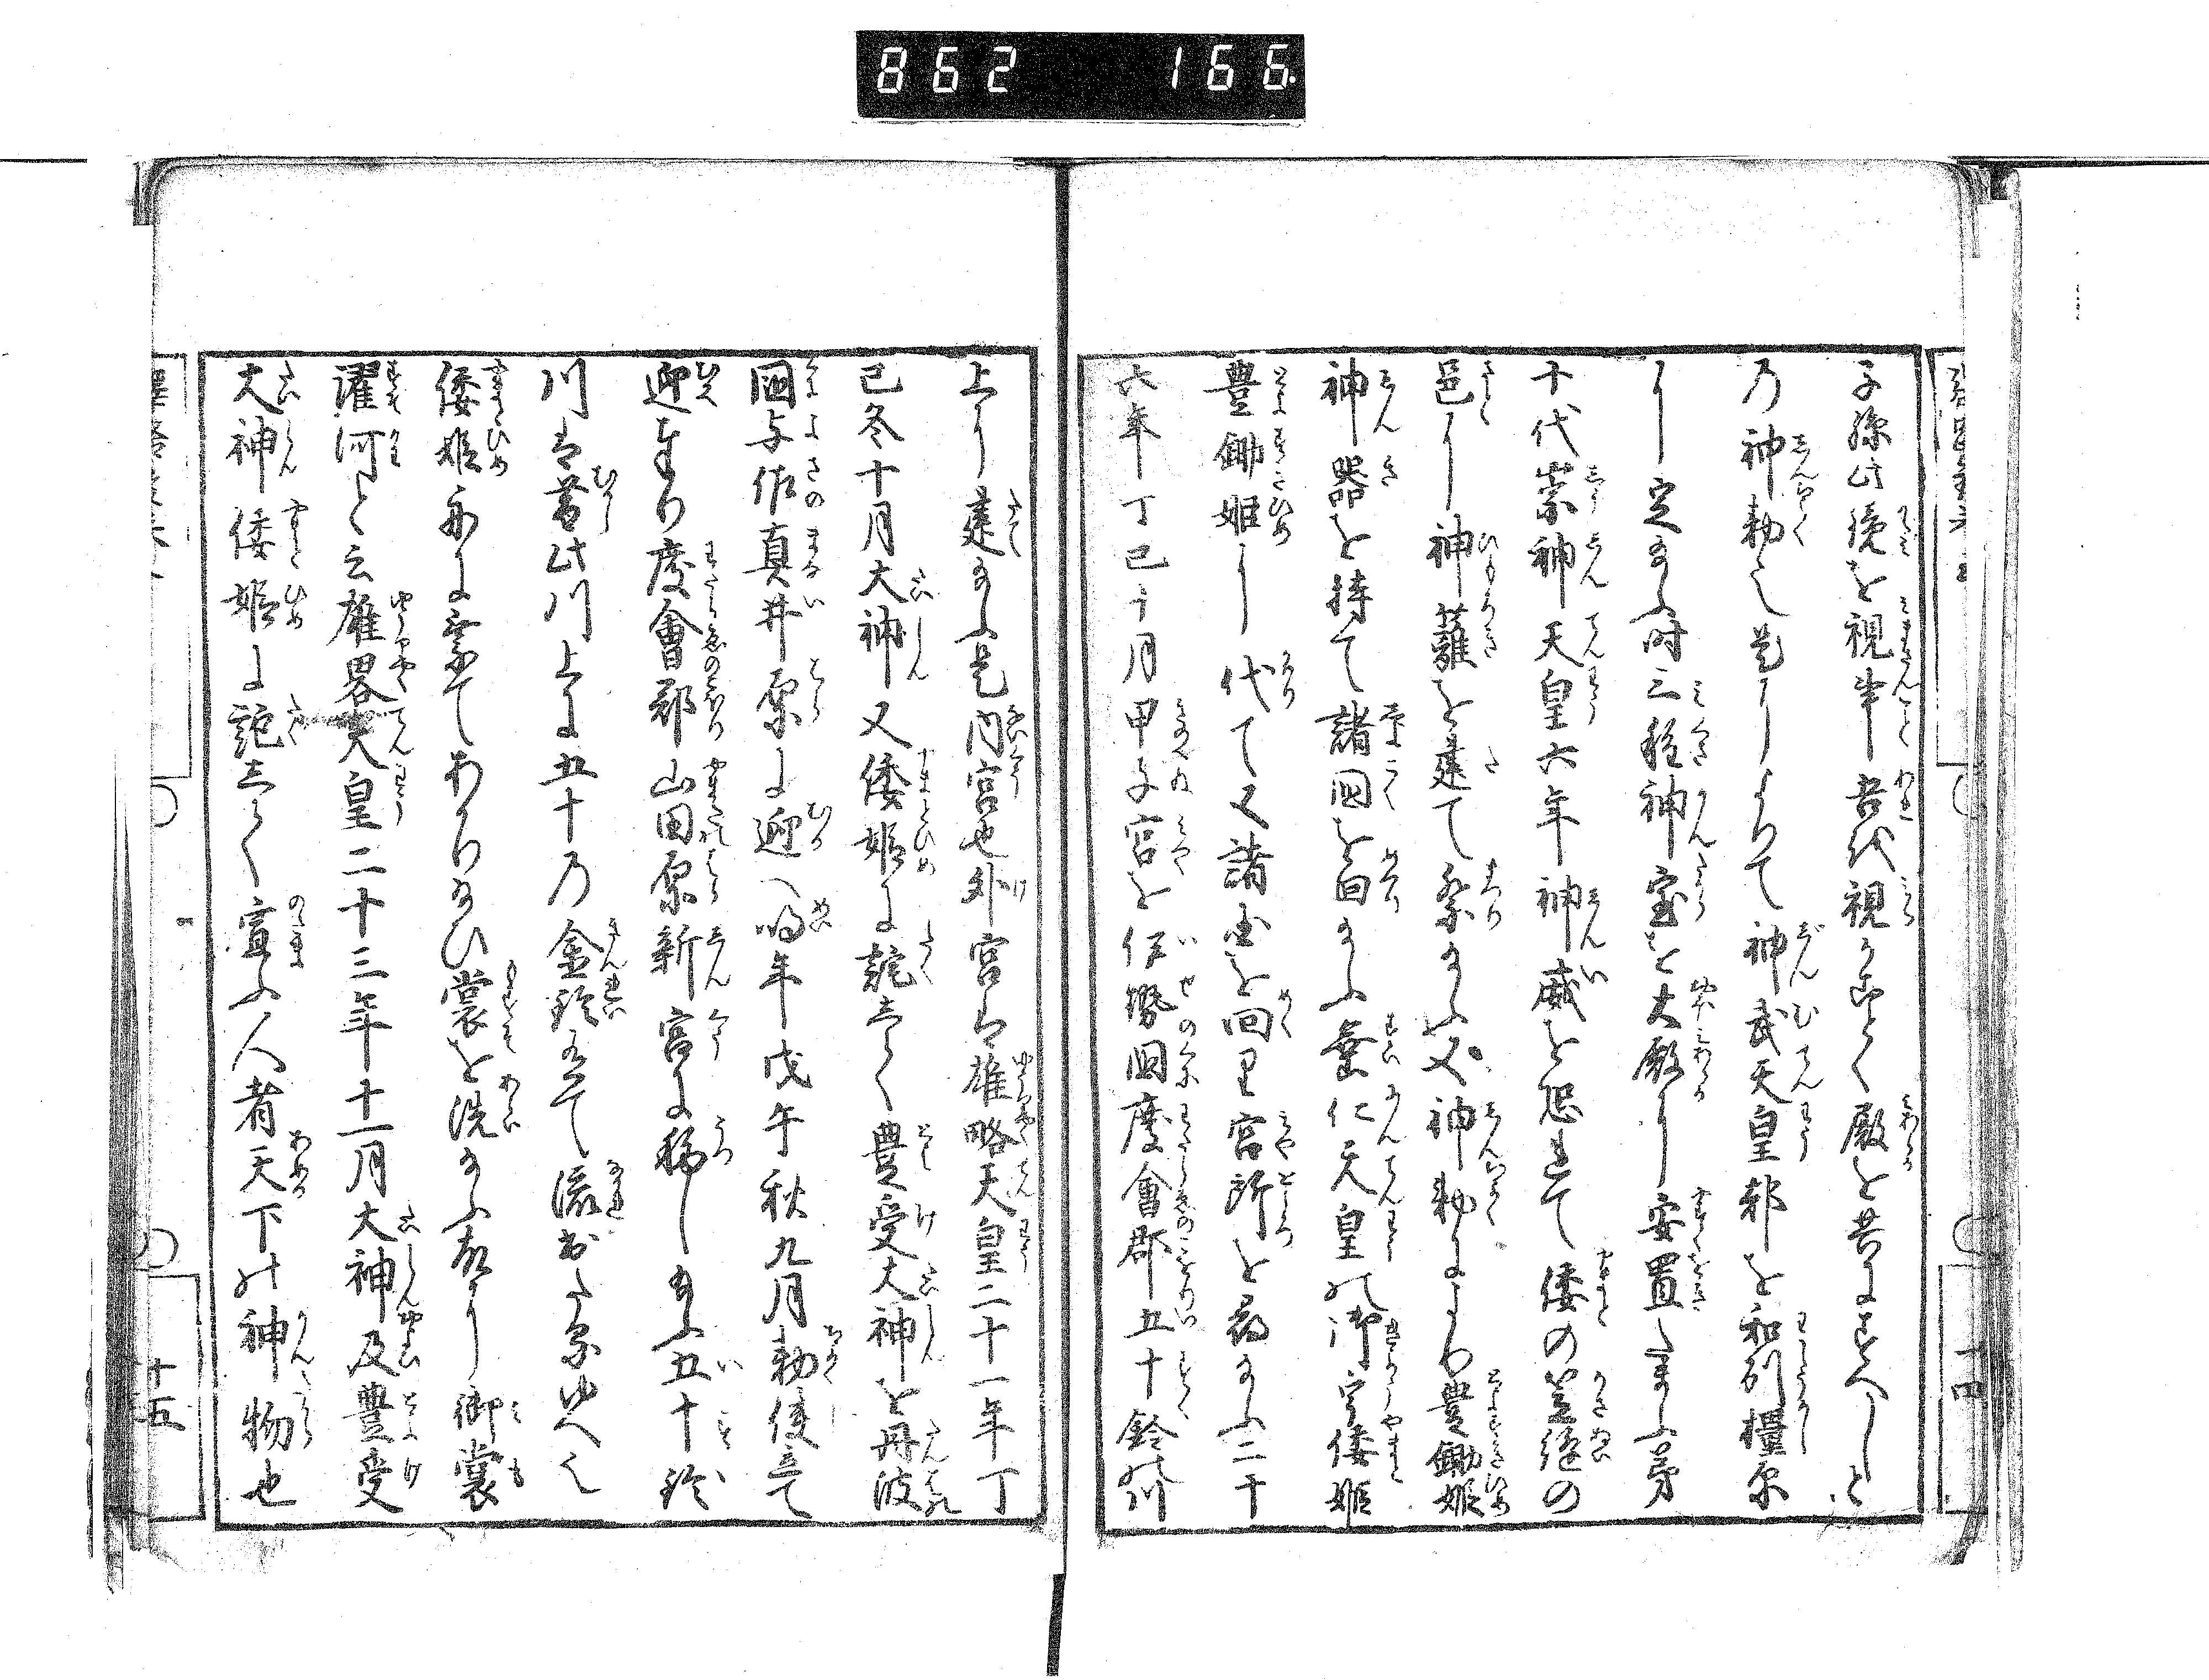 862 166.
子孫此鏡を視申吾代視うごとく殿を共にすべしと
乃神勅也是によりて神武天皇都を和州橿原
に定給ふ時三種神宝を大殿に安置したまふ第
十代崇神天皇六年神威を恐れて倭の笠縫の
邑に神蘺を建て祭り給ふ又神勅により豊鋤姫
神器を持て諸国を回り給ふ垂仁天皇の御宇倭姫
豊鋤姫に代て又諸国を回り宮所を尋給ふ二十
六年丁巳十月甲子宮を伊勢国度會郡五十鈴の川
上に建給ふ是内宮也外宮は雄略天皇二十一年丁
巳冬十月大神又倭姫に託まく豊受大神を丹波
國与佐真井原に迎へ明年戊午秋九月勅使立て
迎奉り度會郡山田原新宮に移し奉る五十鈴
川は昔此川上に五十乃金鈴有て流出たる故也
倭姫命に業てありき給ひ裳を洗給ふ故に御裳
濯河と云雄畧天皇二十三年十一月大神及豊受
大神倭姫に託まく宣ふ人者天下の神物也
十四
十五